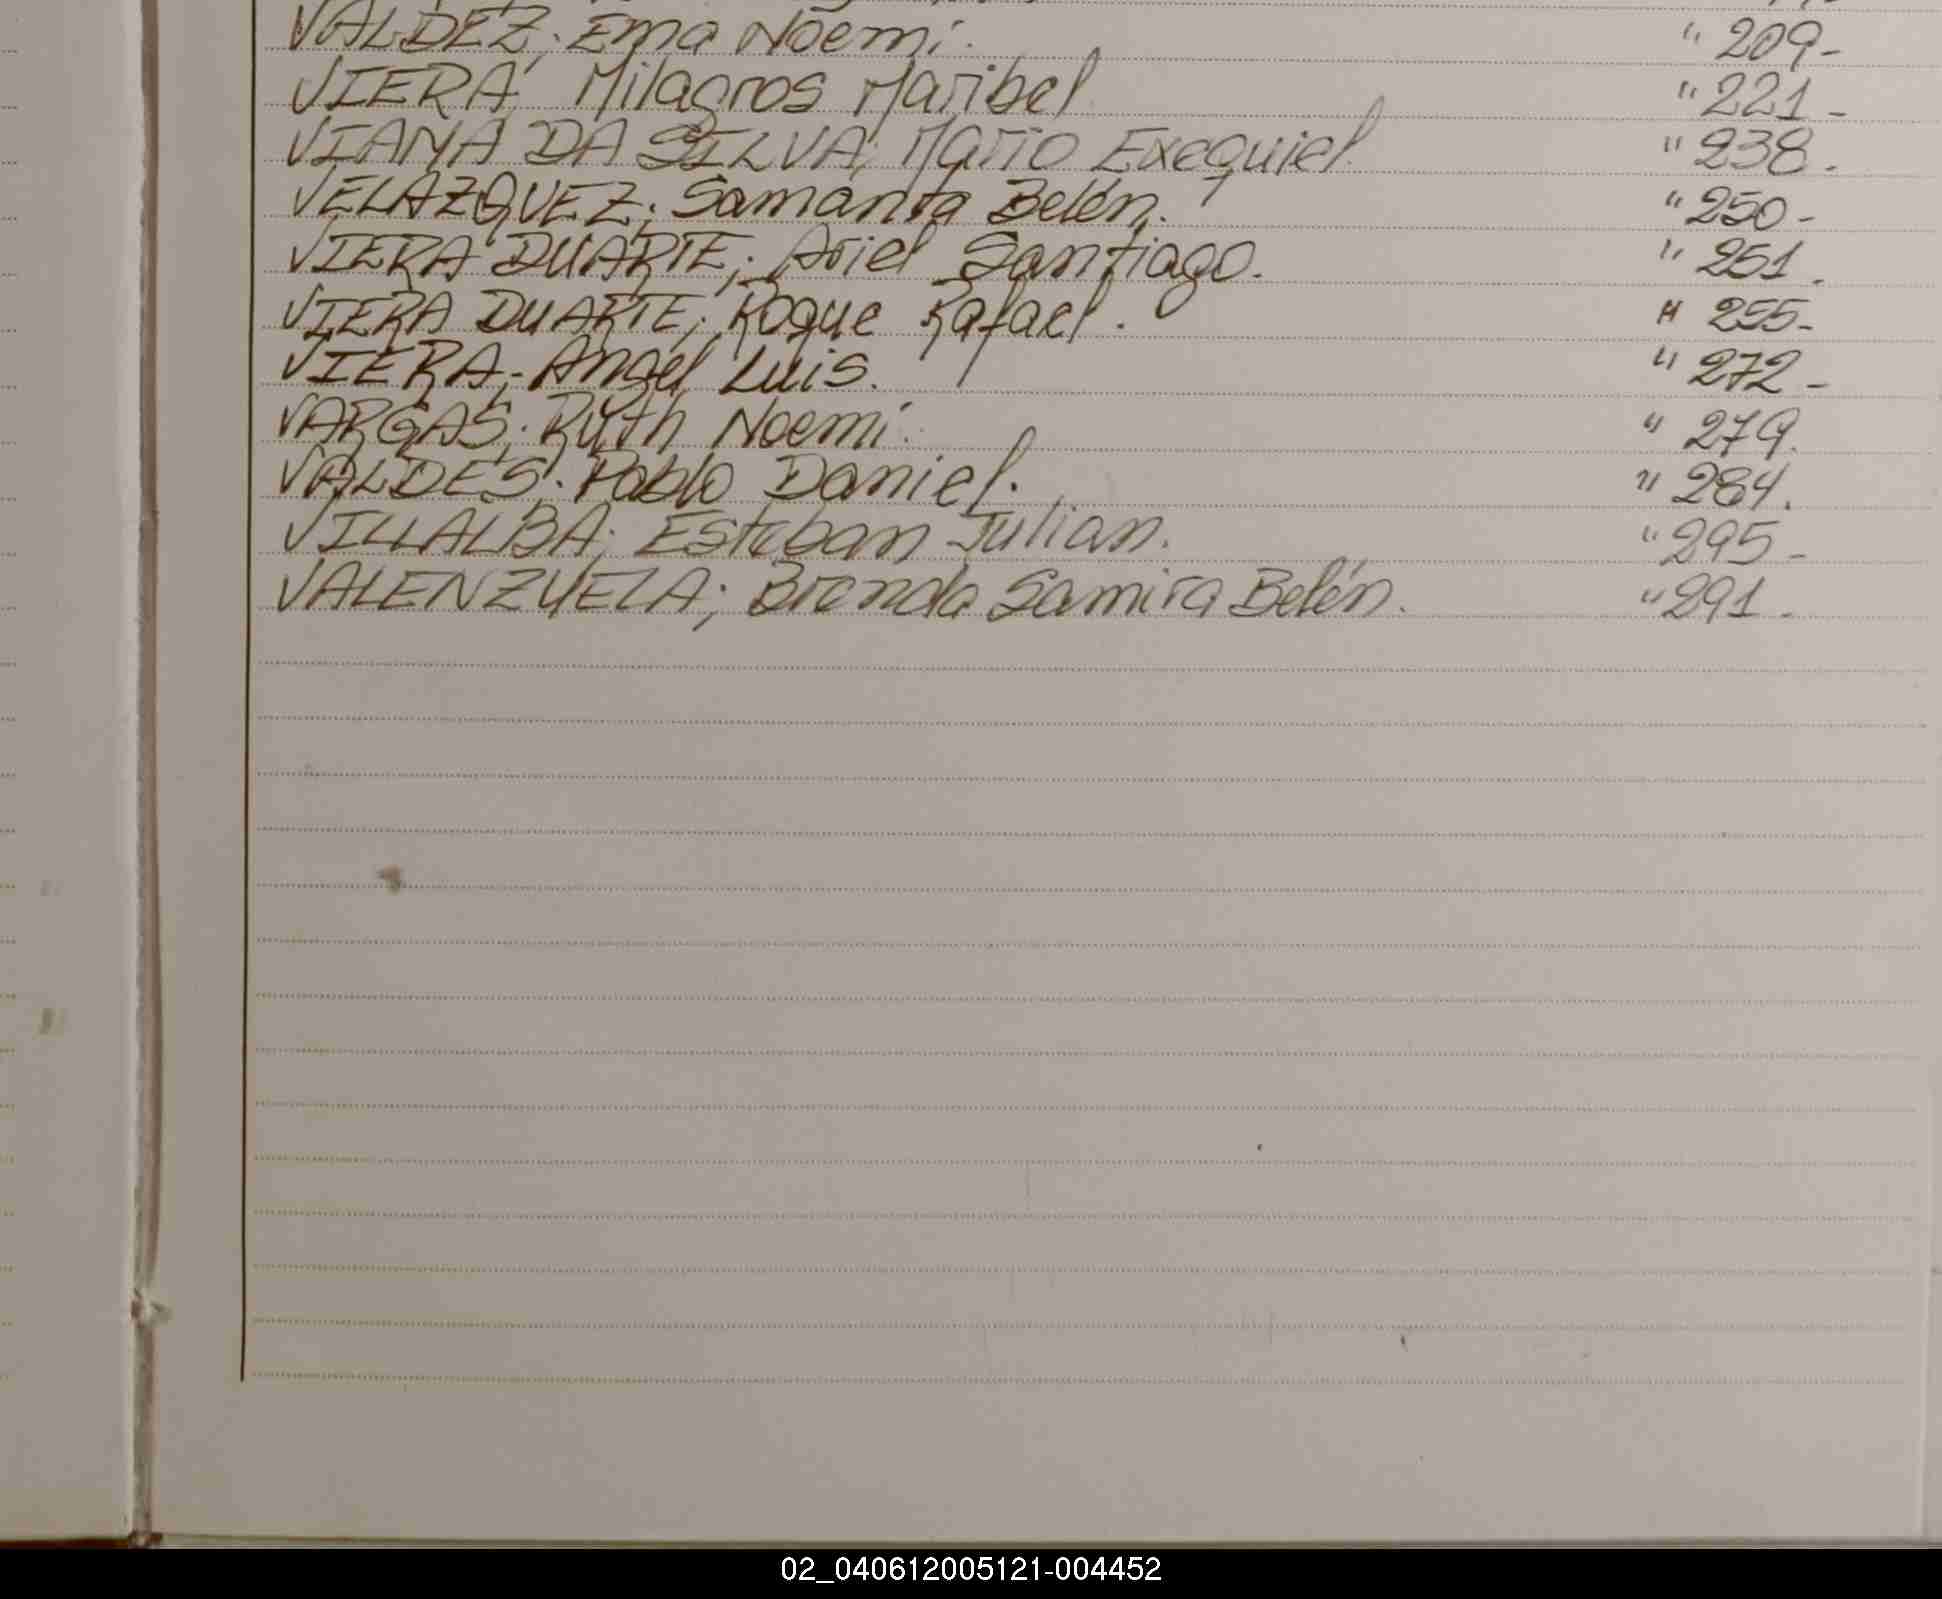 VALDEZ; Ema Noemí. " 209-
VIERA, Milagros Maribel " 221-
VIANA DA SILVA, Mario Exequiel " 238.
VELAZQUEZ; Samanta Belén. " 250-
VIERA DUARTE; Ariel Santiago. " 251.
VIERA DUARTE; Roque Rafael. " 255-
VIERA, Angel Luis. " 272-
VARGAS; Ruth Noemí. " 279.
VALDES; Pablo Daniel. " 284.
VILLALBA; Esteban Julian. " 295-
VALENZUELA; Brenda Samira Belén. " 291.
02_040612005121-004452